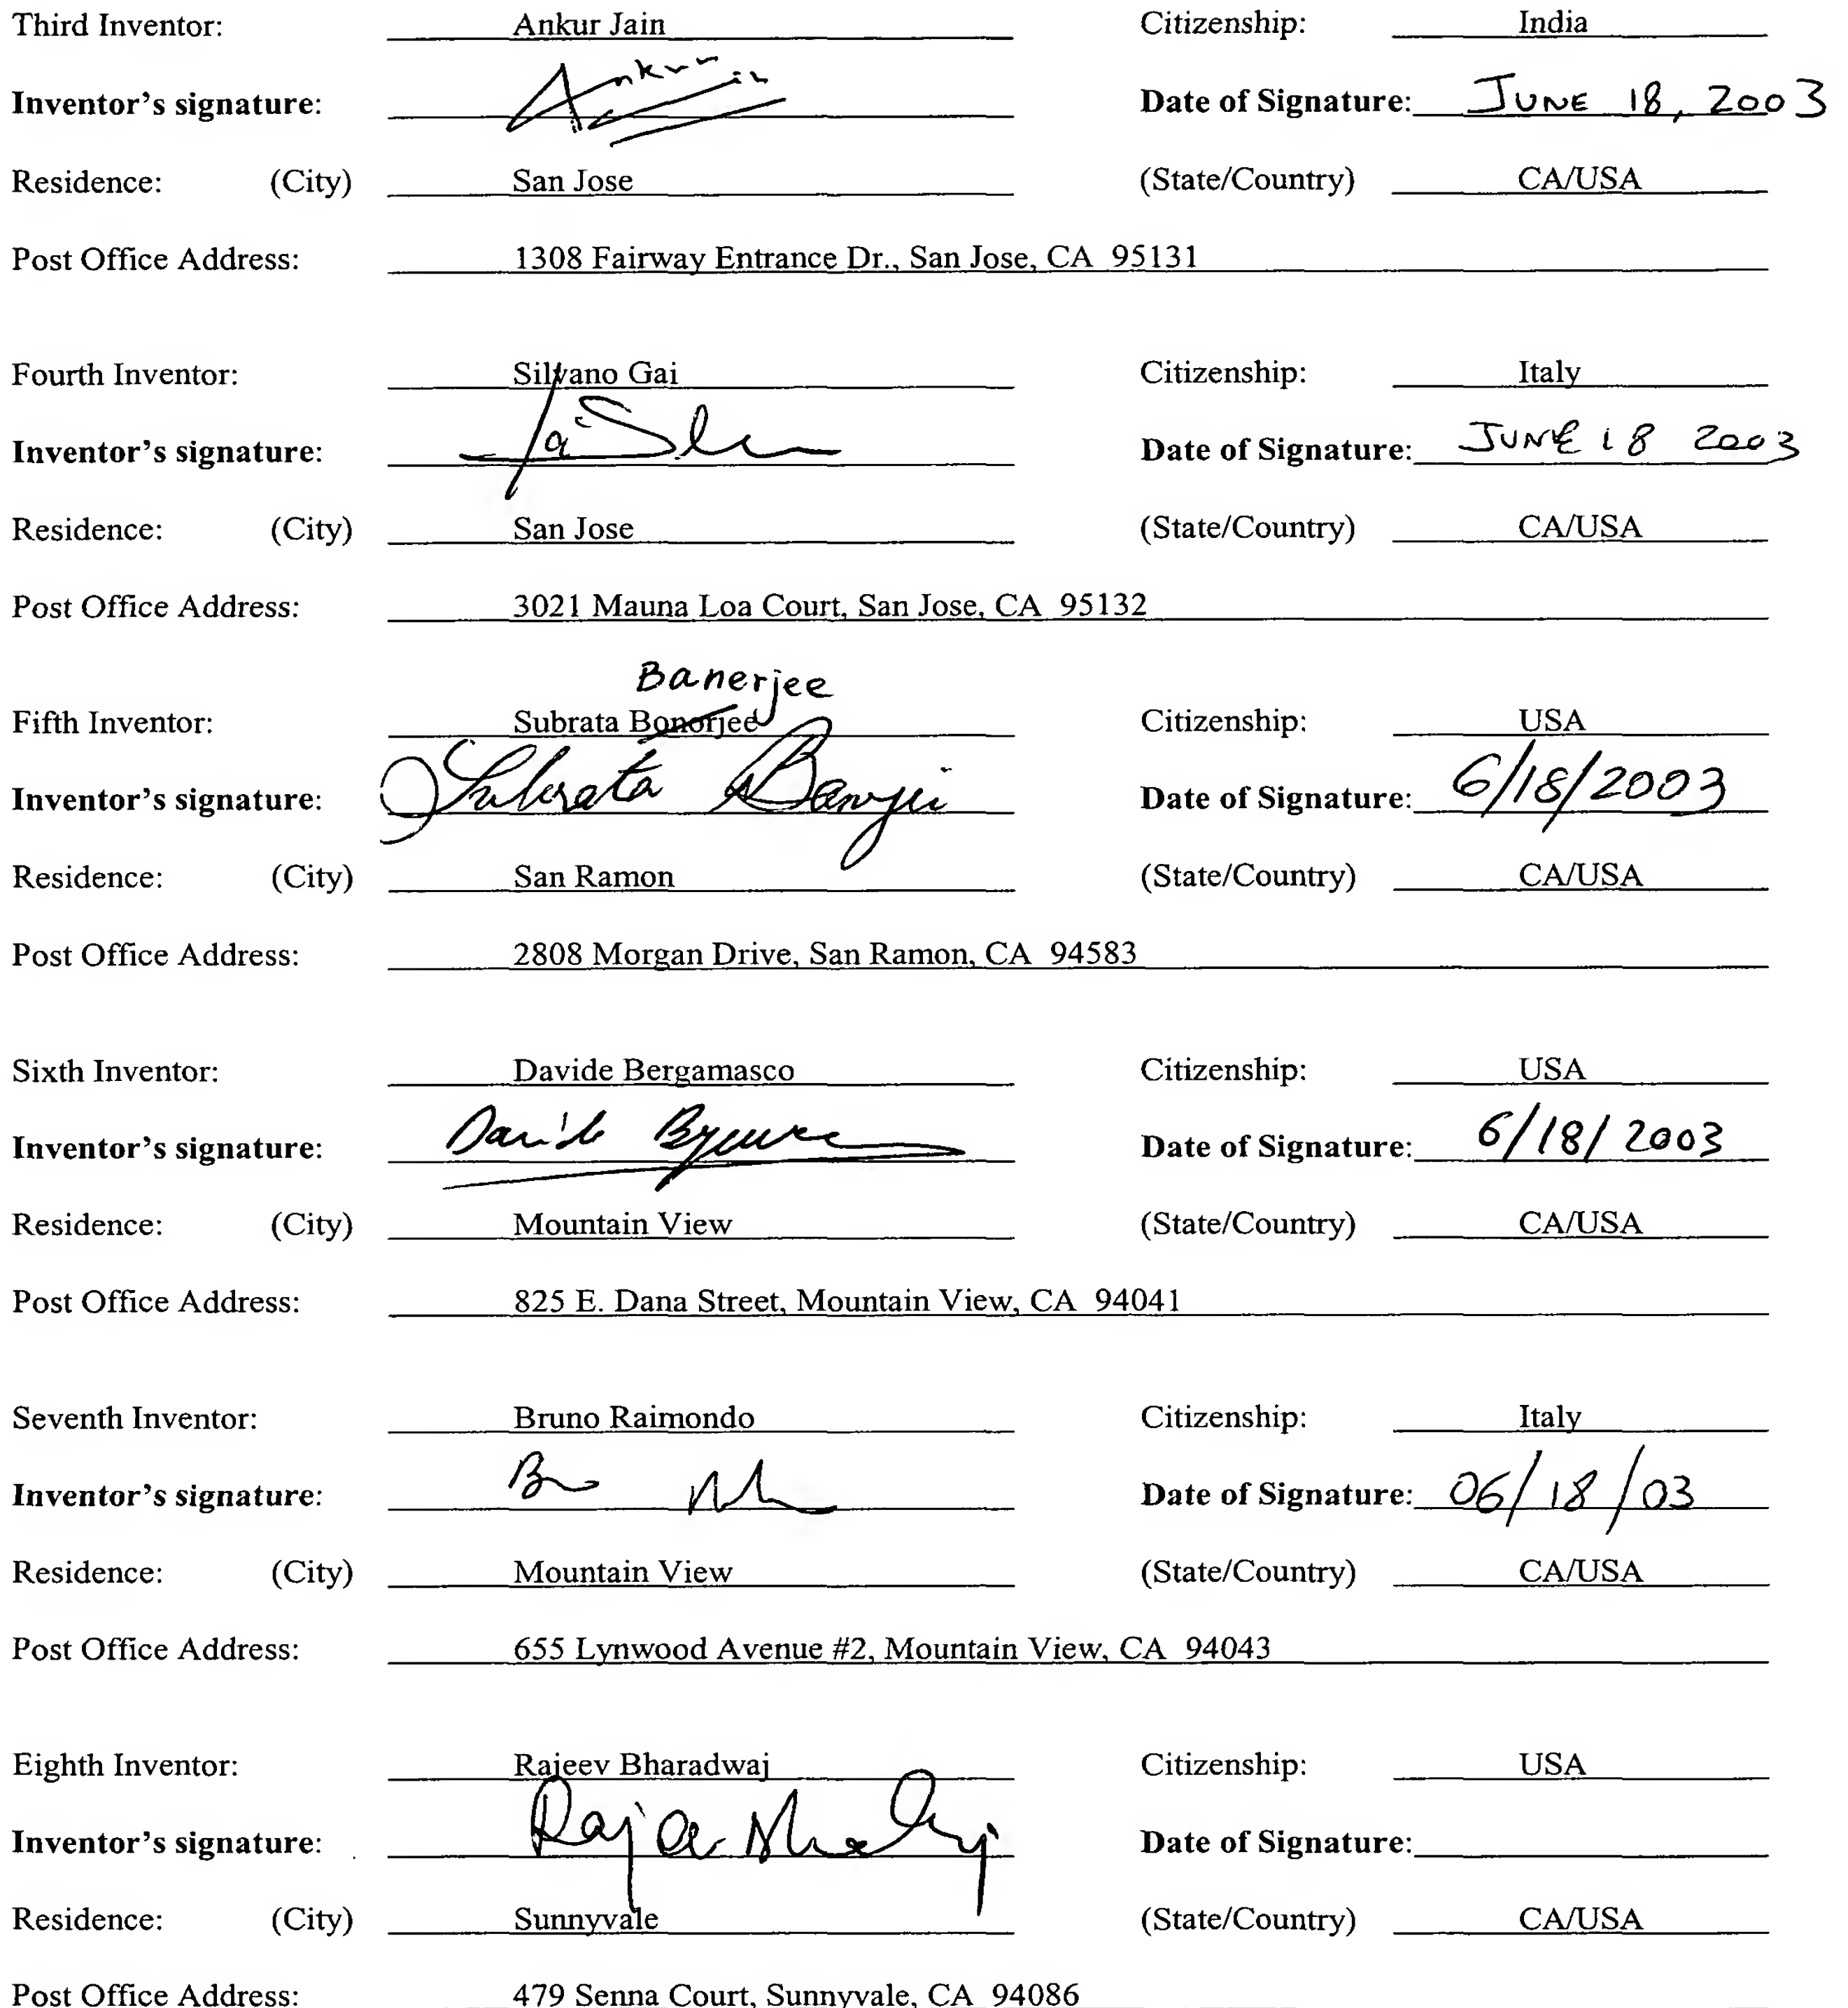 Third Inventor: Ankur Jain Citizenship: India
Inventor's signature: Ankur Date of Signature: JUNE 18, 2003
Residence: (City) San Jose (State/Country) CA/USA
Post Office Address: 1308 Fairway Entrance Dr., San Jose, CA 95131
Fourth Inventor: Silvano Gai Citizenship: Italy
Inventor's signature: Date of Signature: JUNE 18 2003
Residence: (City) San Jose (State/Country) CA/USA
Post Office Address: 3021 Mauna Loa Court, San Jose, CA 95132
Banerjee
Fifth Inventor: Subrata Bonorjee Citizenship: USA
Inventor's signature: Subrata Banerjee Date of Signature: 6/18/2003
Residence: (City) San Ramon (State/Country) CA/USA
Post Office Address: 2808 Morgan Drive, San Ramon, CA 94583
Sixth Inventor: Davide Bergamasco Citizenship: USA
Inventor's signature: Davide Date of Signature: 6/18/2003
Residence: (City) Mountain View (State/Country) CA/USA
Post Office Address: 825 E. Dana Street, Mountain View, CA 94041
Seventh Inventor: Bruno Raimondo Citizenship: Italy
Inventor's signature: Date of Signature: 06/18/03
Residence: (City) Mountain View (State/Country) CA/USA
Post Office Address: 655 Lynwood Avenue #2, Mountain View, CA 94043
Eighth Inventor: Rajeev Bharadwaj Citizenship: USA
Inventor's signature: Date of Signature:
Residence: (City) Sunnyvale (State/Country) CA/USA
Post Office Address: 479 Senna Court, Sunnyvale, CA 94086